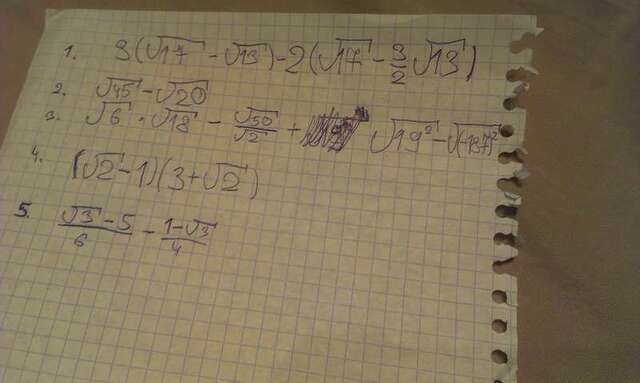 1. 3(√17 - √13) - 2(√17 - 3/2 √13)
2. √45 - √20
3. √6 · √18 - √50/√2 + √19² - √(-137)²
4. (√2 - 1)(3 + √2)
5. √3 - 5/6 - 1 - √3/4